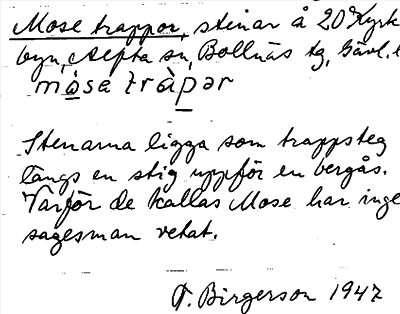 Mose trappor, stenar å 20 Kyrk
byn, Alfta sn, Bollnäs tg, Gävl. l
mòsa tràpər
Stenarna ligga som trappsteg
längs en stig uppför en bergås.
Varför de kallas Mose har inge
sagesman vetat.
T. Birgerson 1947